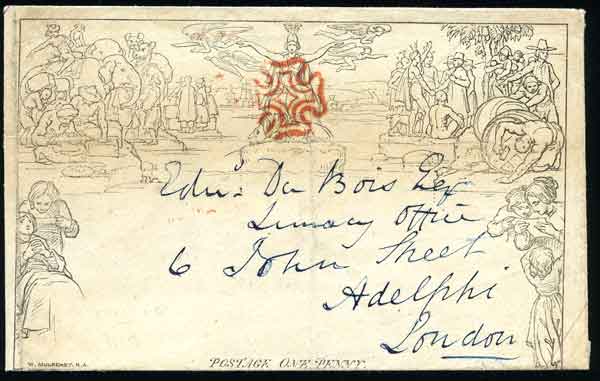 Edwd. Du Bois Esq
Lunacy Office
6 John Street
Adelphi
London
W. MULREADY. R.A.
POSTAGE ONE PENNY.